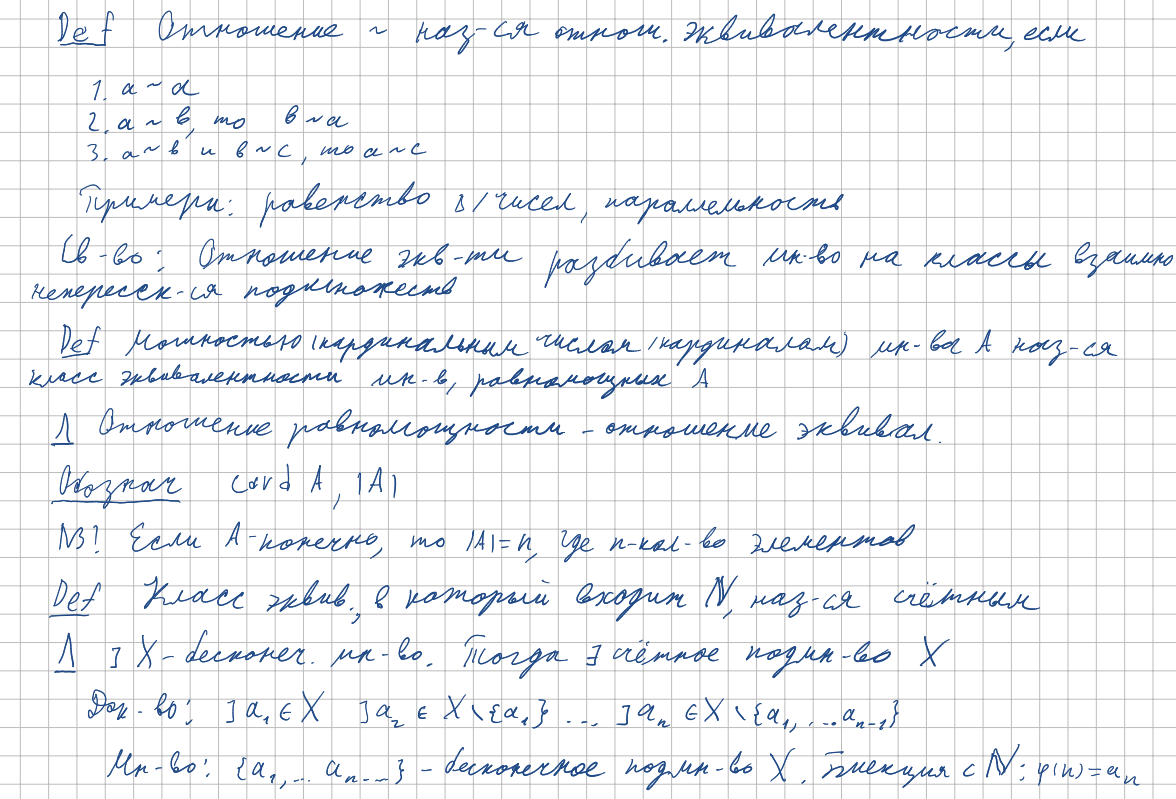 Def Отношение ~ наз-ся отнош. эквивалентности, если
1. a ~ a
2. a ~ b, то b ~ a
3. a ~ b и b ~ c, то a ~ c
Примеры: равенство в/чисел, параллельность
Св-во: Отношение экв-ти разбивает мн-во на классы взаимно
непересек-ся подмножеств
Def Мощностью (кардинальным числом / кардиналом) мн-ва A наз-ся
класс эквивалентности мн-в, равномощных A
Λ Отношение равномощности - отношение эквивал.
Обознач card A, |A|
NB! Если A-конечно, то |A|=n, где n-кол-во элементов
Def Класс эквив., в который входит ℕ, наз-ся счётным
Λ ] X - бесконеч. мн-во. Тогда ∃ счётное подмн-во X
Док-во: ] a₁ ∈ X ] a₂ ∈ X \ {a₁} ... ] aₙ ∈ X \ {a₁, ... aₙ₋₁}
Мн-во: {a₁, ... aₙ ...} - бесконечное подмн-во X. Биекция с ℕ: φ(n) = aₙ